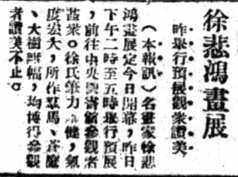 徐悲鴻畫展
昨舉行預展觀衆讚美
（本報訊）名畫家徐悲
鴻畫展定今日開幕，昨日
下午二時至五時舉行預展
，前往中央與寄齋參觀者
甚衆。徐氏筆力健，氣
度宏大，所作駿馬、蒼鷹
、大樹無幅，均博得參觀
者讚美不止。